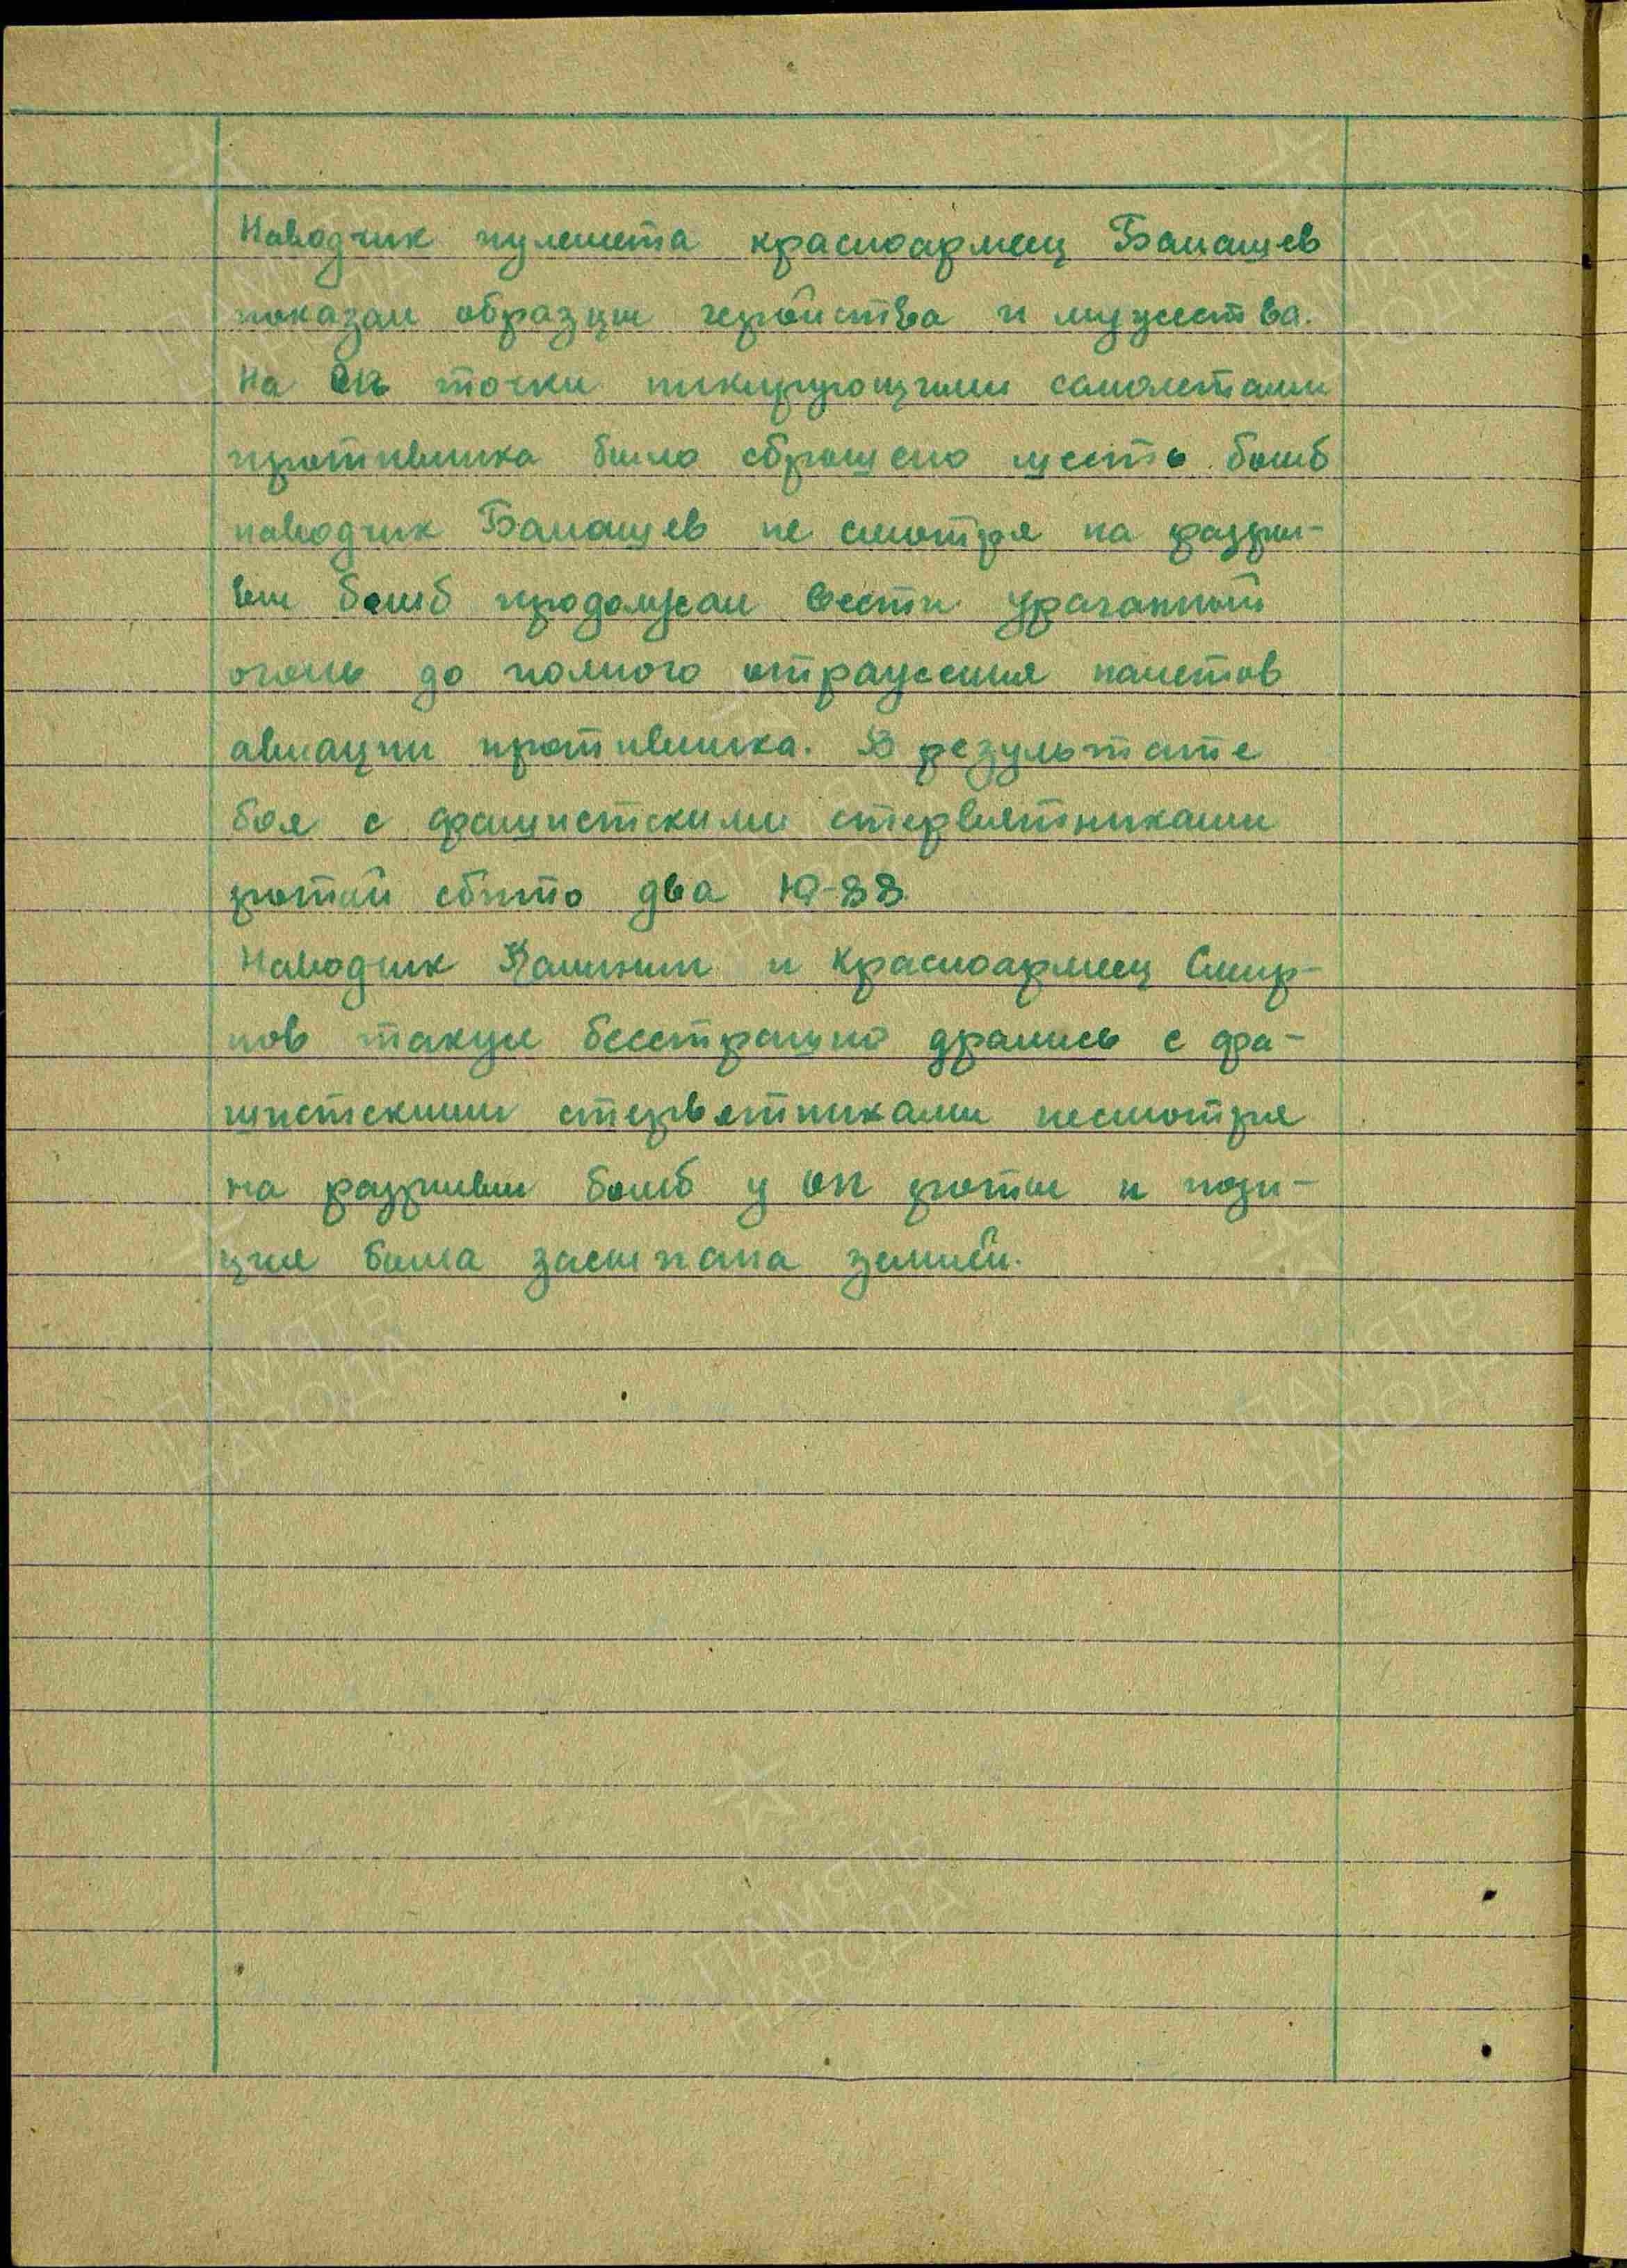 Наводчик пулемета красноармеец Балашев
показал образцы геройства и мужества.
На ОП точки пикирующими самолетами
противника было сброшено шесть бомб
наводчик Балашев не смотря на разры-
вы бомб продолжал вести ураганный
огонь до полного отражения налетов
авиации противника. В результате
боя с фашистскими стервятниками
ротой сбито два Ю-88.
Наводчик Калинин и красноармеец Смир-
нов также бесстрашно дрались с фа-
шистскими стервятниками несмотря
на разрывы бомб у ОП роты и пози-
ция была засыпана землей.
ПАМЯТЬ
НАРОДА